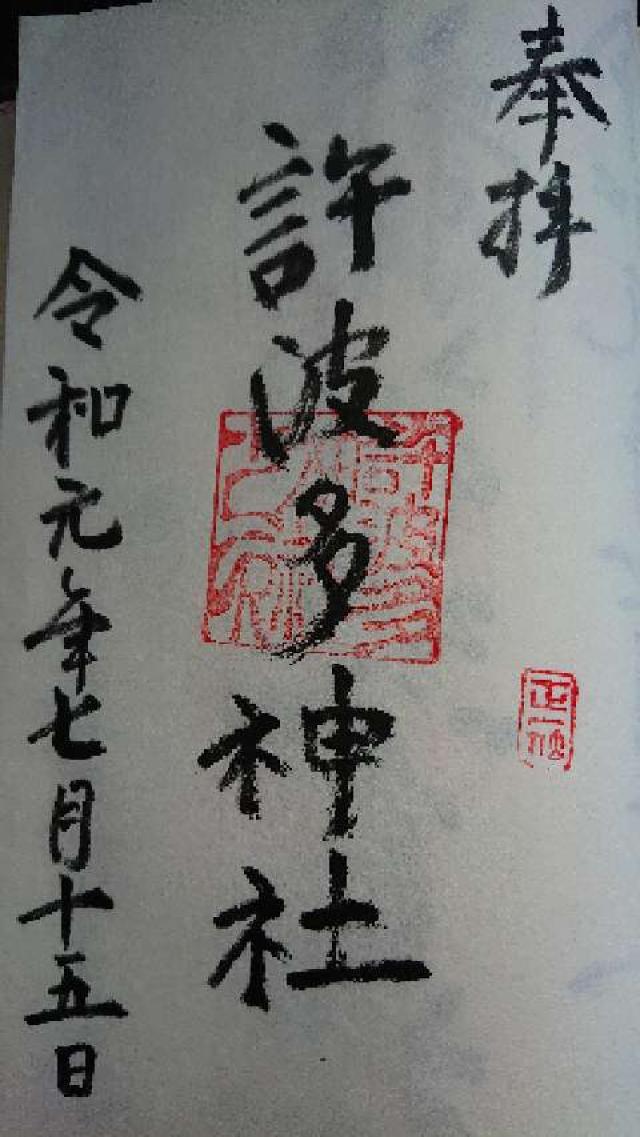 奉拝
許波多神社
令和元年七月十五日
正一位